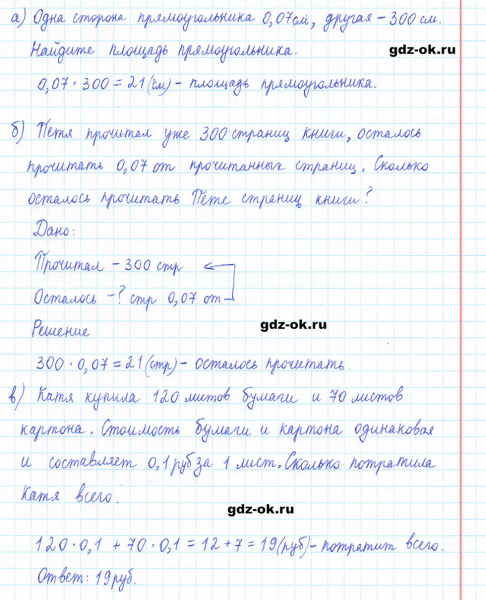 а) Одна сторона прямоугольника 0,07 см, другая – 300 см.
gdz-ok.ru
Найдите площадь прямоугольника.
0,07 · 300 = 21 (см) – площадь прямоугольника.
б) Петя прочитал уже 300 страниц книги, осталось
прочитать 0,07 от прочитанных страниц. Сколько
осталось прочитать Пете страниц книги?
Дано:
Прочитал – 300 стр
Осталось – ? стр 0,07 от
gdz-ok.ru
Решение
300 · 0,07 = 21 (стр) – осталось прочитать.
в) Катя купила 120 литов бумаги и 70 листов
картона. Стоимость бумаги и картона одинаковая
и составляет 0,1 руб за 1 лист. Сколько потратила
Катя всего.
gdz-ok.ru
120 · 0,1 + 70 · 0,1 = 12 + 7 = 19 (руб) – потратит всего.
Ответ: 19 руб.